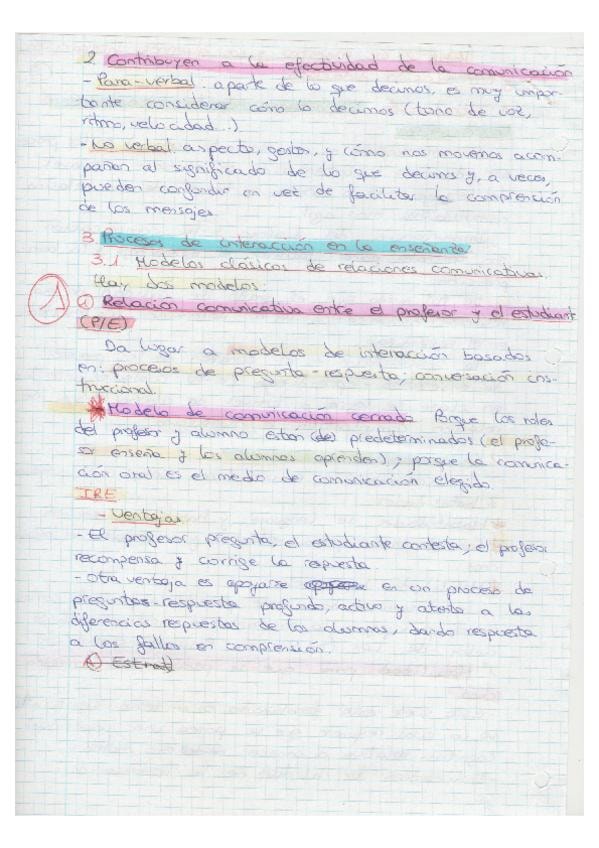 2. Contribuyen a la efectividad de la comunicación
- Para-verbal: aparte de lo que decimos, es muy impor-
tante considerar cómo lo decimos (tono de voz,
ritmo, velocidad...)
- No verbal: aspecto, gestos, y cómo nos movemos acom-
pañan al significado de lo que decimos y, a veces,
pueden confundir en vez de facilitar la comprensión
de los mensajes.
3. Procesos de interacción en la enseñanza
3.1 Modelos clásicos de relaciones comunicativas
Hay dos modelos:
① Relación comunicativa entre el profesor y el estudiante
(P/E)
Da lugar a modelos de interacción basados
en: procesos de pregunta-respuesta; conversación ins-
truccional.
* Modelo de comunicación cerrado Porque los roles
del profesor y alumno están (de) predeterminados (el profe-
sor enseña y los alumnos aprenden); porque la comunica-
ción oral es el medio de comunicación elegido.
IRE
- Ventajas
- El profesor pregunta, el estudiante contesta; el profesor
recompensa y corrige la respuesta.
- otra ventaja es apoyarse en un proceso de
preguntas-respuesta profundo, activo y atento a las
diferencias respuestas de los alumnos, dando respuesta
a los fallos en comprensión.